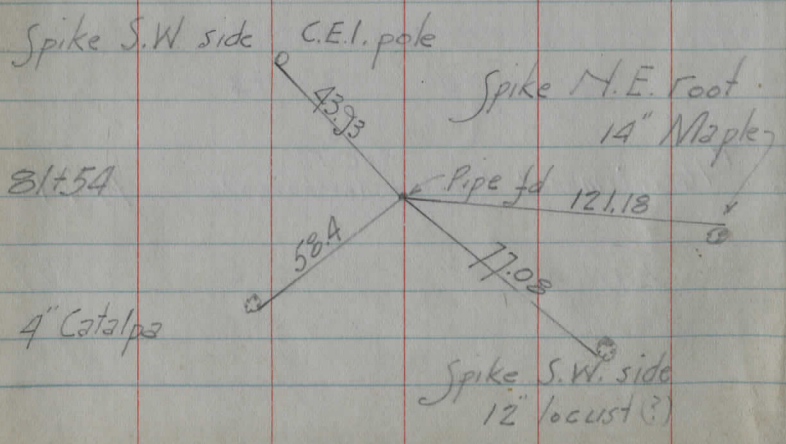 Spike S.W side C.E.I. pole
43.93
Spike N.E. root.
14" Maple
81+54
Pipe fd
121.18
58.4
77.08
4" Catalpa
Spike S.W. side
12" locust (?)